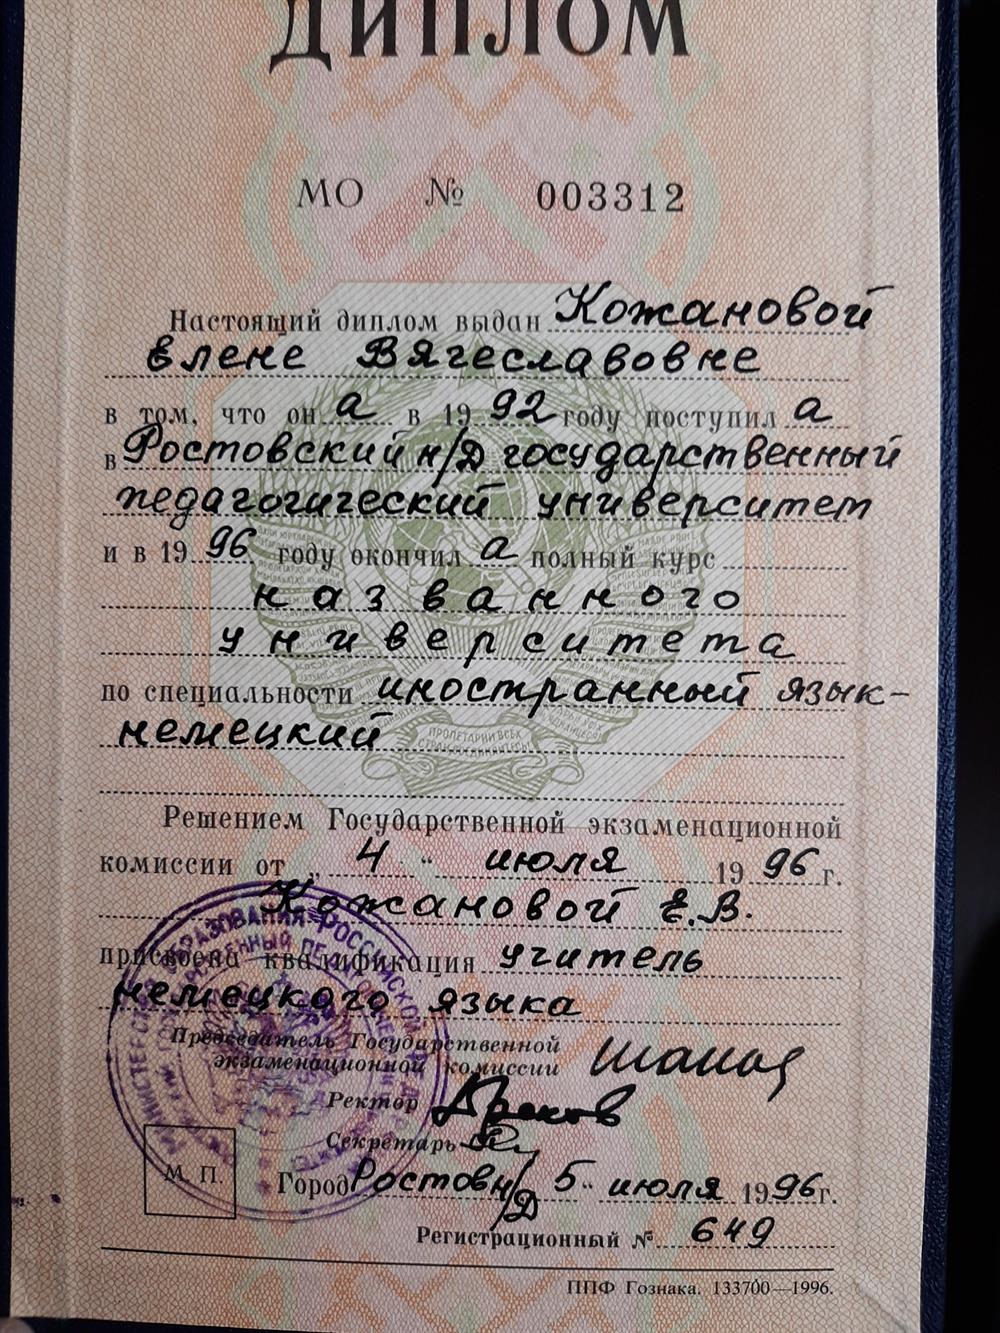 ДИПЛОМ
МО № 003312
Настоящий диплом выдан Кожановой
Елене Вячеславовне
в том, что он а в 19 92 году поступил а
в Ростовский н/Д государственный
педагогический университет
и в 19 96 году окончил а полный курс
названного
университета
по специальности иностранный язык-
немецкий
ПРОЛЕТАРИИ ВСЕХ
Решением Государственной экзаменационной
комиссии от „ 4 “ июля 19 96 г.
Кожановой Е.В.
присвоена квалификация учитель
немецкого языка
Председатель Государственной
экзаменационной комиссии
Ректор
Секретарь
М. П. Город Ростов н/Д 5 “ июля 19 96 г.
Регистрационный № 649
ППФ Гознака. 133700—1996.